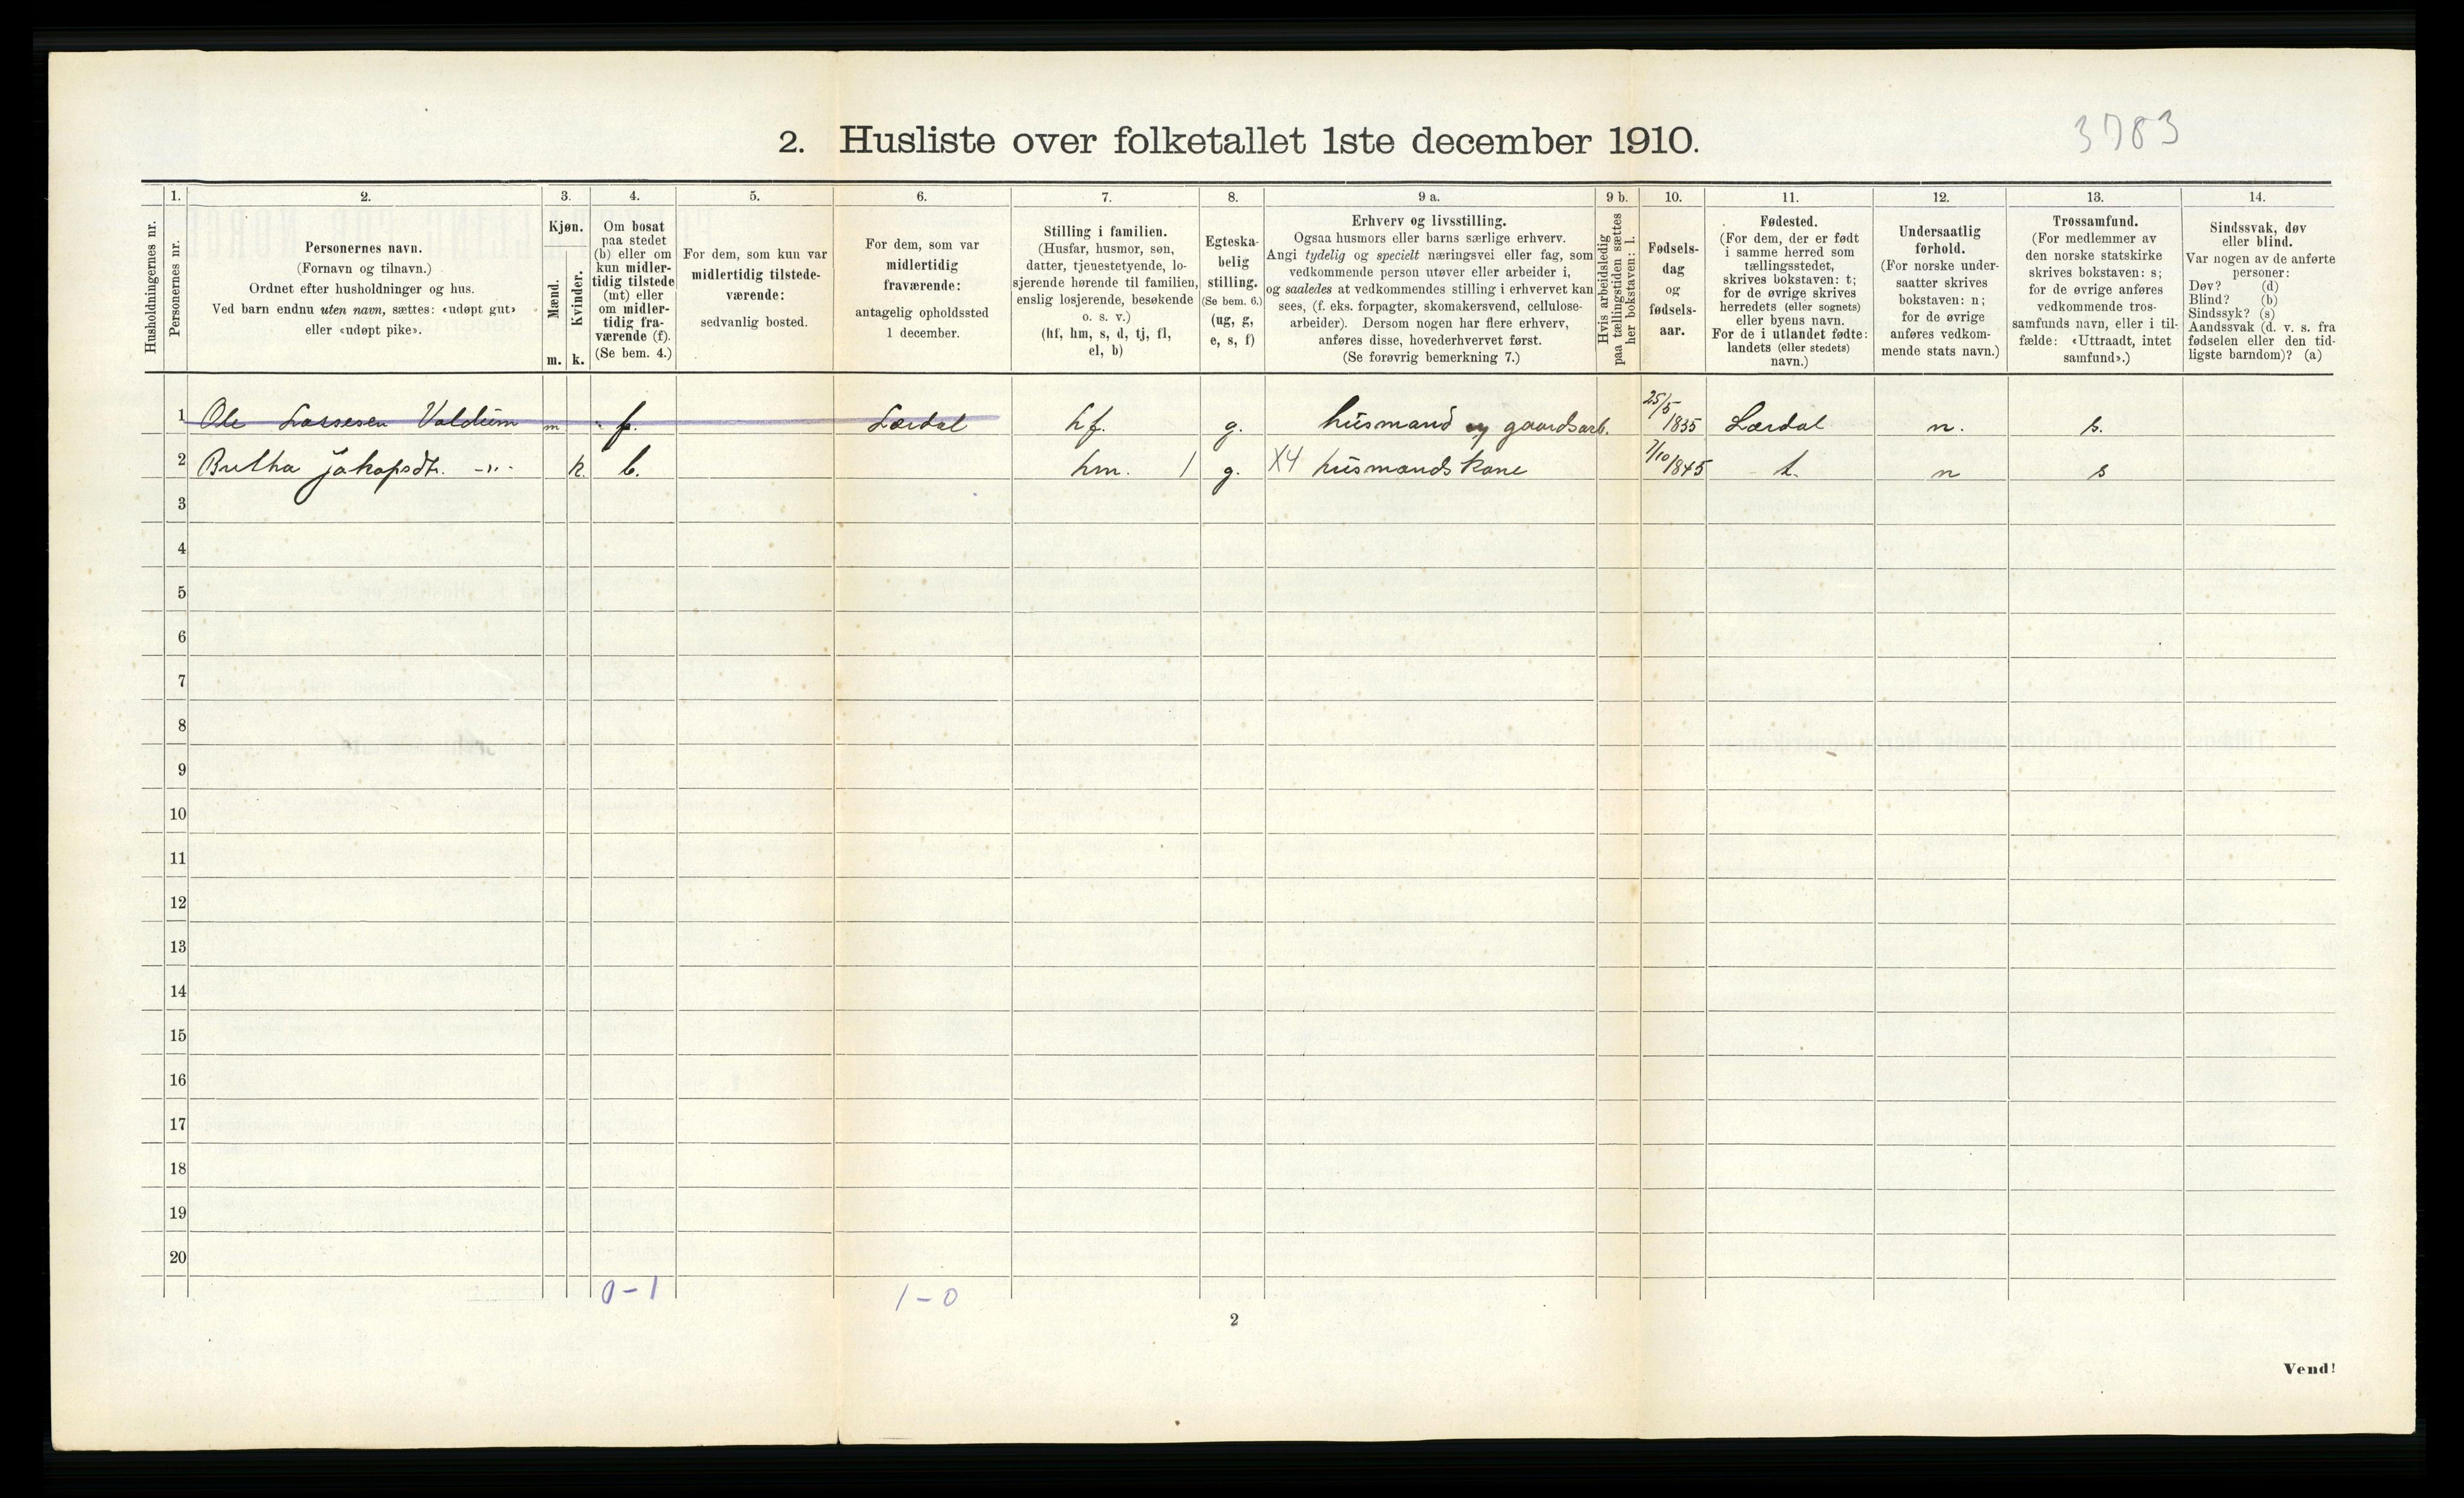 3783
2. Husliste over folketallet 1ste december 1910.
Husholdningernes nr.
1.
Personernes nr.
2.
Personernes navn.
(Fornavn og tilnavn.)
Ordnet efter husholdninger og hus.
Ved barn endnu uten navn, sættes: «udøpt gut»
eller «udøpt pike».
3.
Kjøn.
Mænd.
Kvinder.
m. k.
4.
Om bosat
paa stedet
(b) eller om
kun midler-
tidig tilstede
(mt) eller
om midler-
tidig fra-
værende (f).
(Se bem. 4.)
5.
For dem, som kun var
midlertidig tilstede-
værende:
sedvanlig bosted.
6.
For dem, som var
midlertidig
fraværende:
antagelig opholdssted
1 december.
7.
Stilling i familien.
(Husfar, husmor, søn,
datter, tjenestetyende, lo-
sjerende hørende til familien,
enslig losjerende, besøkende
o. s. v.)
(hf, hm, s, d, tj, fl,
el, b)
8.
Egteska-
belig
stilling.
(Se bem. 6.)
(ug, g,
e, s, f)
9 a.
Erhverv og livsstilling.
Ogsaa husmors eller barns særlige erhverv.
Angi tydelig og specielt næringsvei eller fag, som
vedkommende person utøver eller arbeider i,
og saaledes at vedkommendes stilling i erhvervet kan
sees, (f. eks. forpagter, skomakersvend, cellulose-
arbeider). Dersom nogen har flere erhverv,
anføres disse, hovederhvervet først.
(Se forøvrig bemerkning 7.)
9 b.
Hvis arbeidsledig
paa tællingstiden sættes
her bokstaven: l.
10.
Fødsels-
dag
og
fødsels-
aar.
11.
Fødested.
(For dem, der er født
i samme herred som
tællingsstedet,
skrives bokstaven: t;
for de øvrige skrives
herredets (eller sognets)
eller byens navn.
For de i utlandet fødte:
landets (eller stedets)
navn.)
12.
Undersaatlig
forhold.
(For norske under-
saatter skrives
bokstaven: n;
for de øvrige
anføres vedkom-
mende stats navn.)
13.
Trossamfund.
(For medlemmer av
den norske statskirke
skrives bokstaven: s;
for de øvrige anføres
vedkommende tros-
samfunds navn, eller i til-
fælde: «Uttraadt, intet
samfund».)
14.
Sindssvak, døv
eller blind.
Var nogen av de anførte
personer:
Døv? (d)
Blind? (b)
Sindssyk? (s)
Aandssvak (d. v. s. fra
fødselen eller den tid-
ligste barndom)? (a)
1 Ole Lassesen Voldum m f. Lærdal hf. g. husmand og gaardsarb. 25/5 1835 Lærdal n. s.
2 Britha Jakopsdtr. -"- k. b. hm. 1 g. X4 husmandskone 7/10 1845 t. n s
3
4
5
6
7
8
9
10
11
12
13
14
15
16
17
18
19
20
0-1 1-0
2
Vend!